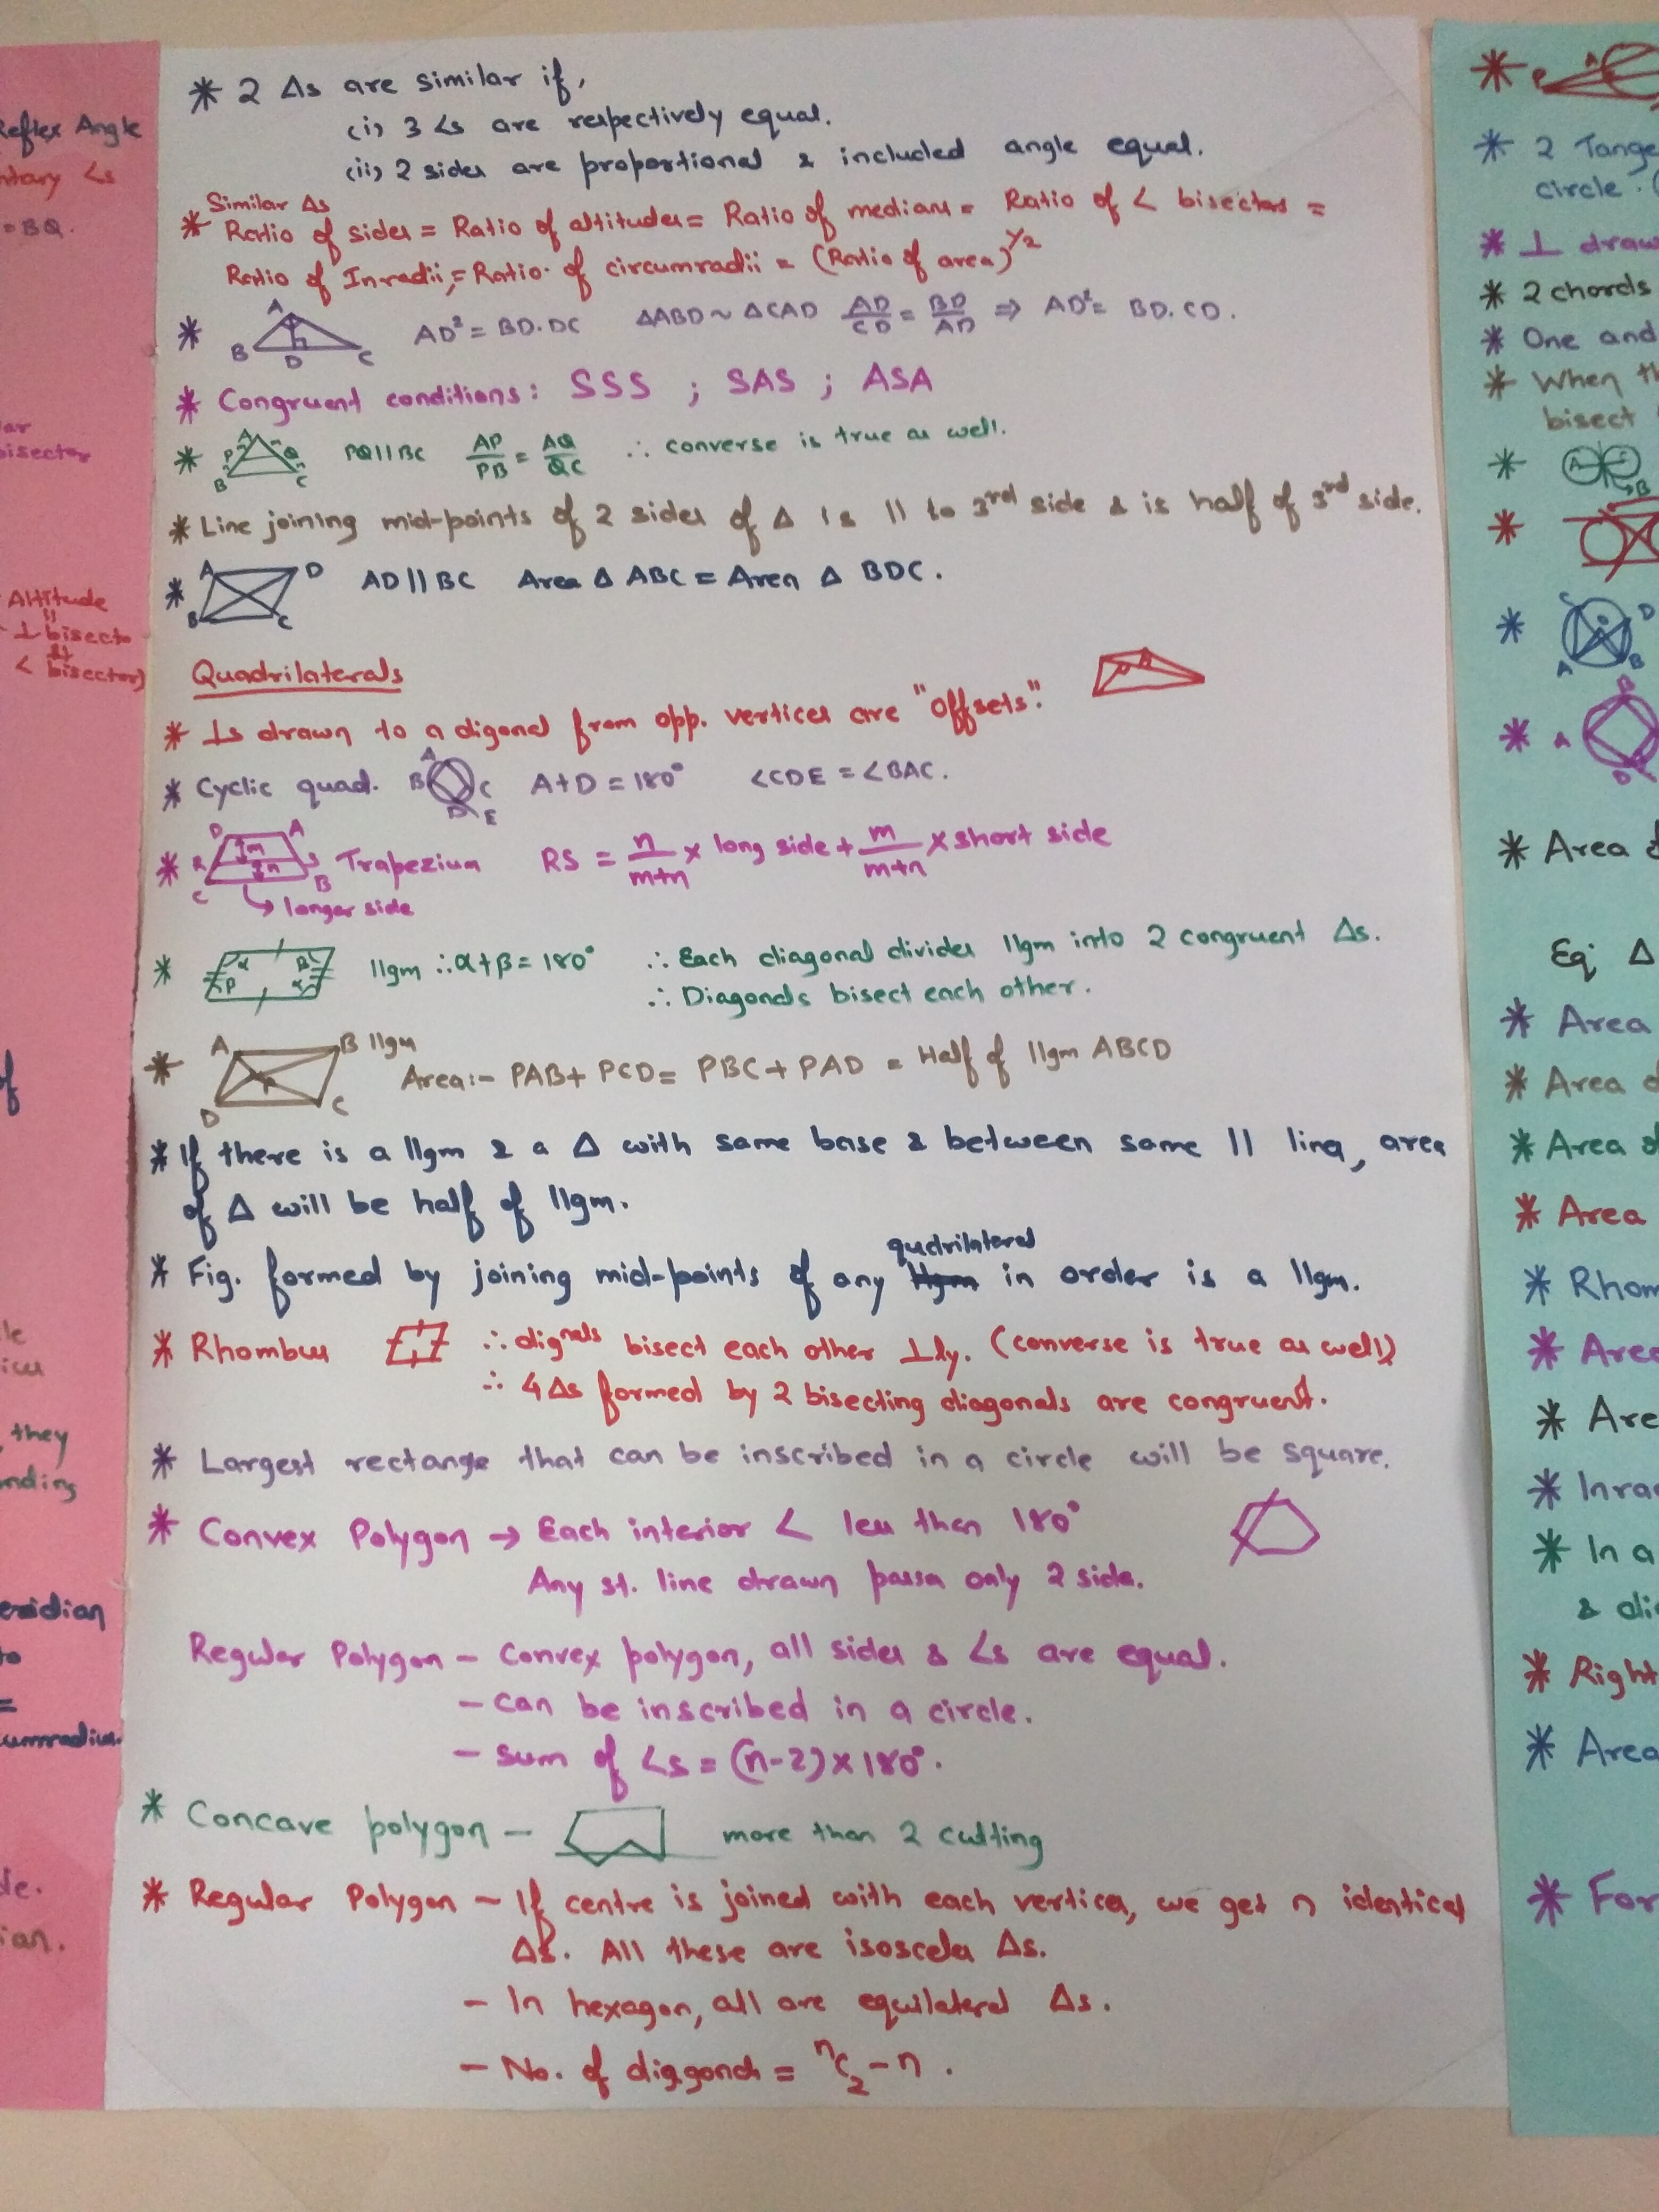 Reflex Angle
ntary ∠s
= BQ.
lar
bisector
Altitude
||
⊥ bisecto
&
∠ bisector)
of
le
, they
nding
eridian
to
=
cumradius.
le.
ian.
* 2 Δs are similar if,
(i) 3 ∠s are respectively equal.
(ii) 2 sides are proportional & included angle equal.
Similar Δs
* Ratio of sides = Ratio of altitudes = Ratio of medians = Ratio of ∠ bisectors =
Ratio of Inradii = Ratio of circumradii = (Ratio of area)^1/2
* A B D C AD² = BD.DC ΔABD ~ ΔCAD AD/CD = BD/AD ⇒ AD² = BD.CD.
* Congruent conditions: SSS ; SAS ; ASA
* A P Q B C PQ||BC AP/PB = AQ/QC ∴ converse is true as well.
* Line joining mid-points of 2 sides of Δ is || to 3rd side & is half of 3rd side.
* A D B C AD||BC Area Δ ABC = Area Δ BDC.
Quadrilaterals
* ⊥s drawn to a digonal from opp. vertices are "Offsets".
* Cyclic quad. A B C D E A+D = 180° ∠CDE = ∠BAC.
* D A R S C B m n Trapezium RS = n/m+n × long side + m/m+n × short side
↳ longer side
* α β β α ||gm ∴ α+β = 180° ∴ Each diagonal divides ||gm into 2 congruent Δs.
∴ Diagonals bisect each other.
* A B D C P ||gm Area:- PAB + PCD = PBC + PAD = Half of ||gm ABCD
* If there is a ||gm & a Δ with same base & between same || lines, area
of Δ will be half of ||gm.
qudrilateral
* Fig. formed by joining mid-points of any ||gm in order is a ||gm.
* Rhombus ∴ dignals bisect each other ⊥ly. (converse is true as well)
∴ 4 Δs formed by 2 bisecting diagonals are congruent.
* Largest rectange that can be inscribed in a circle will be square.
* Convex Polygon → Each interior ∠ less than 180°
Any st. line drawn passes only 2 sides.
Regular Polygon – Convex polygon, all sides & ∠s are equal.
– can be inscribed in a circle.
– sum of ∠s = (n-2) × 180°.
* Concave polygon – more than 2 cutting
* Regular Polygon – If centre is joined with each vertices, we get n identical
Δs. All these are isosceles Δs.
– In hexagon, all are equilateral Δs.
– No. of diagonals = ⁿC₂ – n.
* P A
* 2 Tange
circle.
* ⊥ draw
* 2 chords
* One and
* When th
bisect
* A B
*
* C D A B
* A B D
* Area o
Eq. Δ
* Area
* Area o
* Area o
* Area
* Rhom
* Area
* Are
* Inra
* In a
& di
* Right
* Area
* For